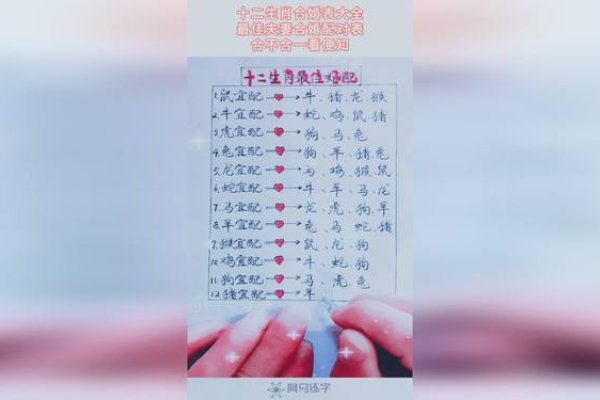 十二生肖合婚表大全
最佳夫妻合婚配对表
合不合一看便知
十二生肖最佳婚配
1.鼠宜配→牛、猪、龙、猴
2.牛宜配→蛇、鸡、鼠、猪
3.虎宜配→狗、马、兔
4.兔宜配→狗、羊、猪、兔
5.龙宜配→马、鸡、猴、鼠
6.蛇宜配→牛、羊、马、龙
7.马宜配→龙、虎、狗、羊
8.羊宜配→兔、马、蛇、猪
9.猴宜配→鼠、龙、狗
10.鸡宜配→牛、蛇、狗
11.狗宜配→马、虎、兔
12.猪宜配→羊
阿马练字